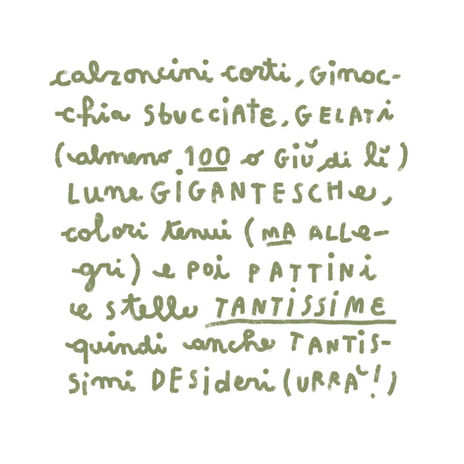 calzoncini corti, Ginoc-
-chia sbucciate, GELATi
(almeno 100 o Giù di lì)
LUNe GiGANTESCHe,
colori tenui (MA ALLe-
gri) e Poi PATTiNi
e stelle TANTiSSiME
quindi anche TANTiS-
Simi DESideri (URRÀ!)